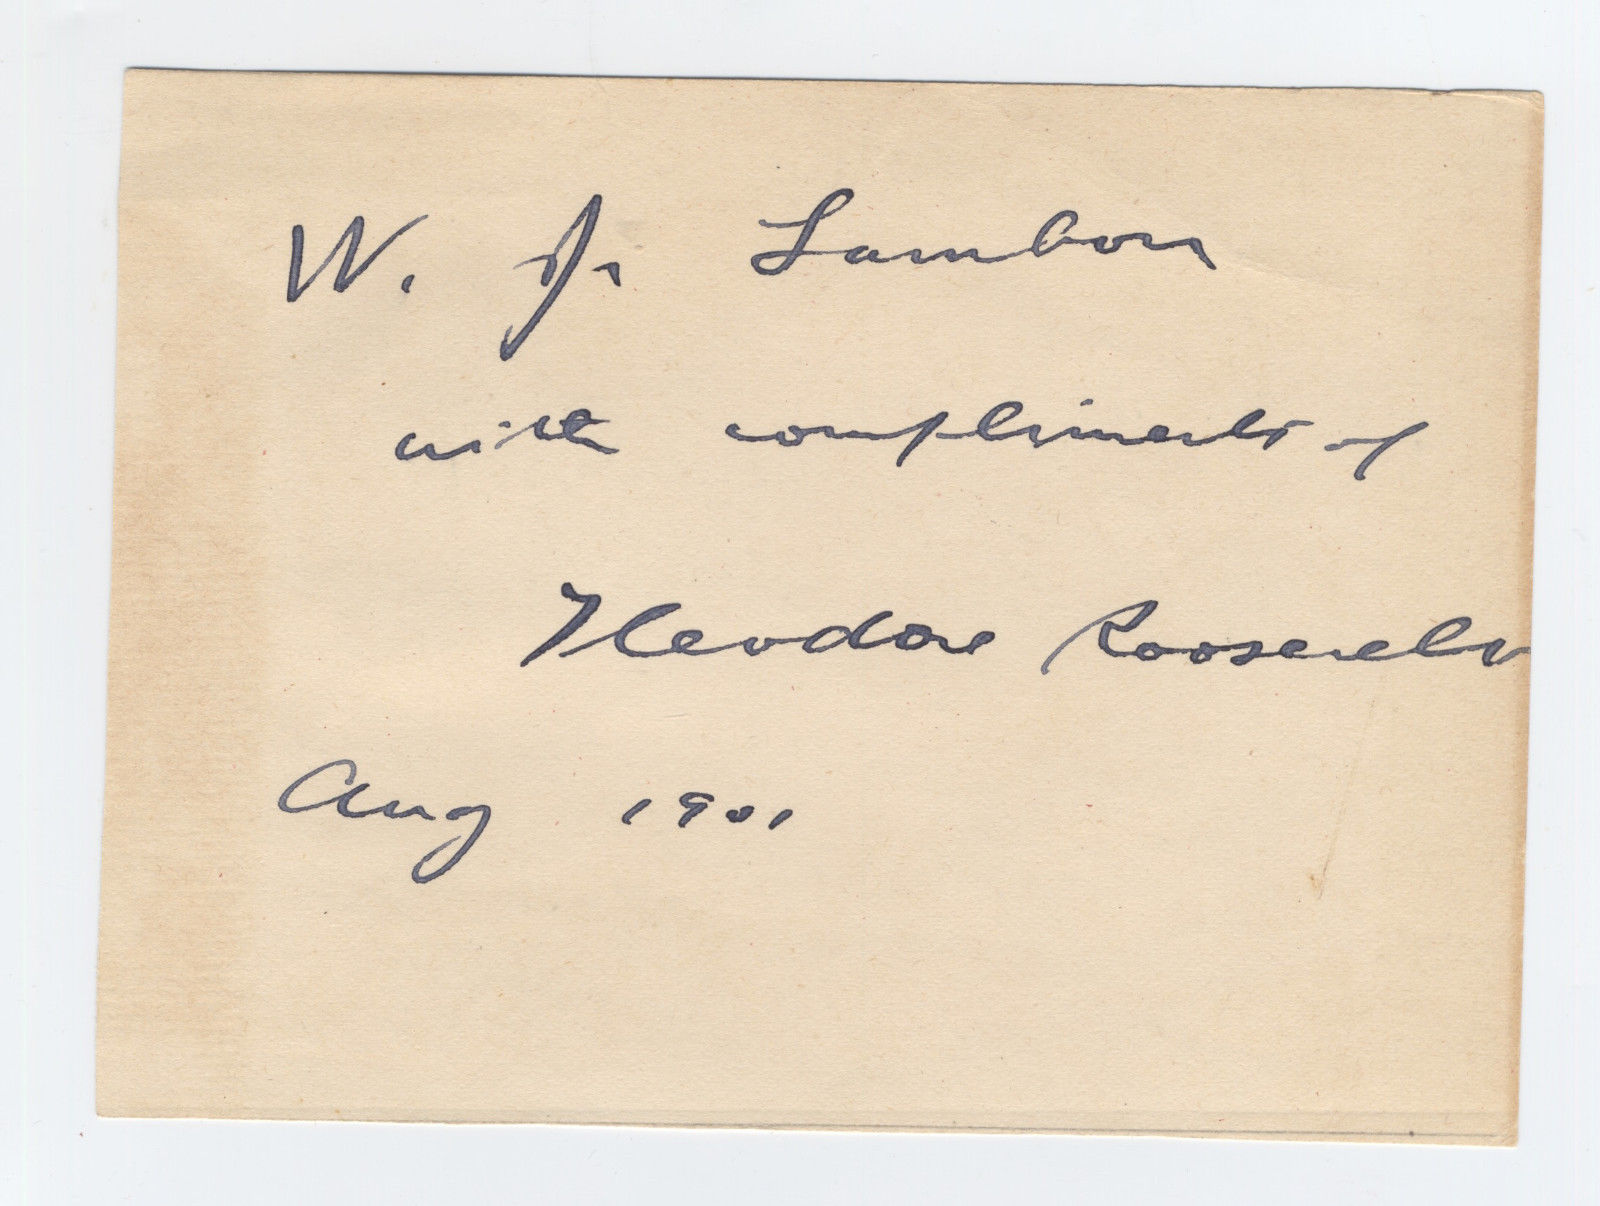 W. J. Lambon
with compliments of
Theodore Roosevelt
Aug 1901